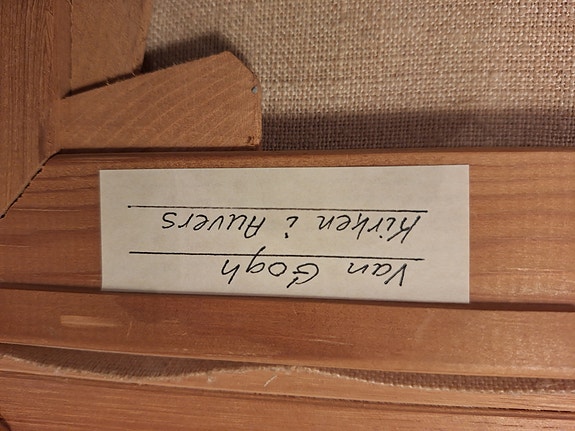 Van Gogh
Kirken i Auvers